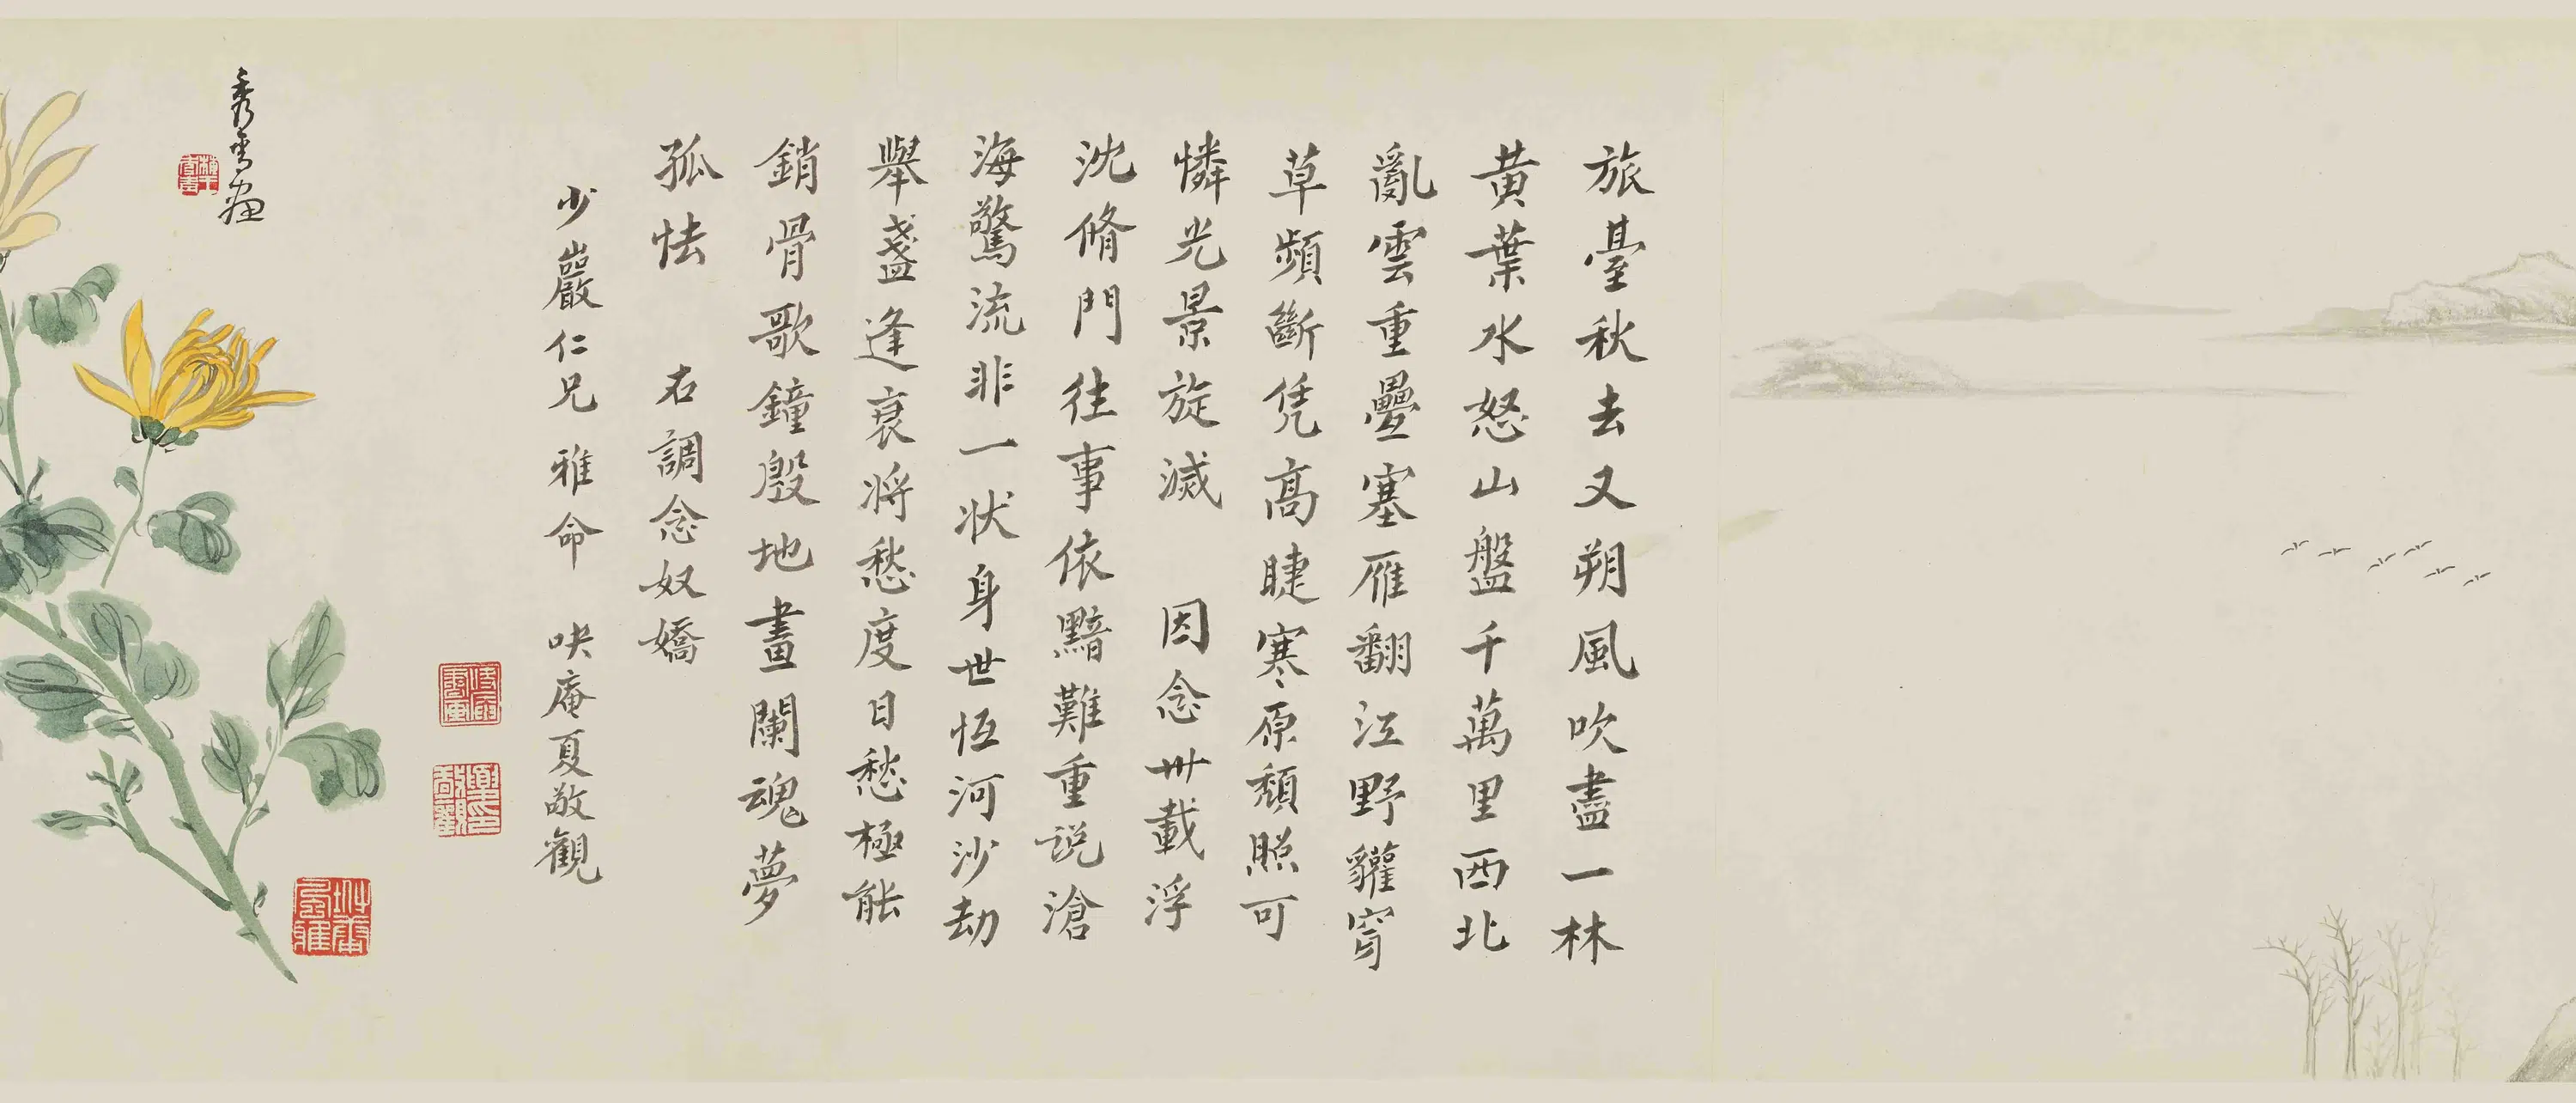 旅臺秋去又朔風吹盡一林
黃葉水怒山盤千萬里西北
亂雲重疊塞雁翻江野貛窅
草頻斷凭高睫寒原頹照可
憐光景旋滅 因念卅載浮
沈脩門往事依黯難重說滄
海驚流非一狀身世恆河沙劫
舉盞逢衰將愁度日愁極能
銷骨歌鐘殷地畫闌魂夢
孤怯 右調念奴嬌
少巖仁兄 雅命 吷庵夏敬觀
秀雪画